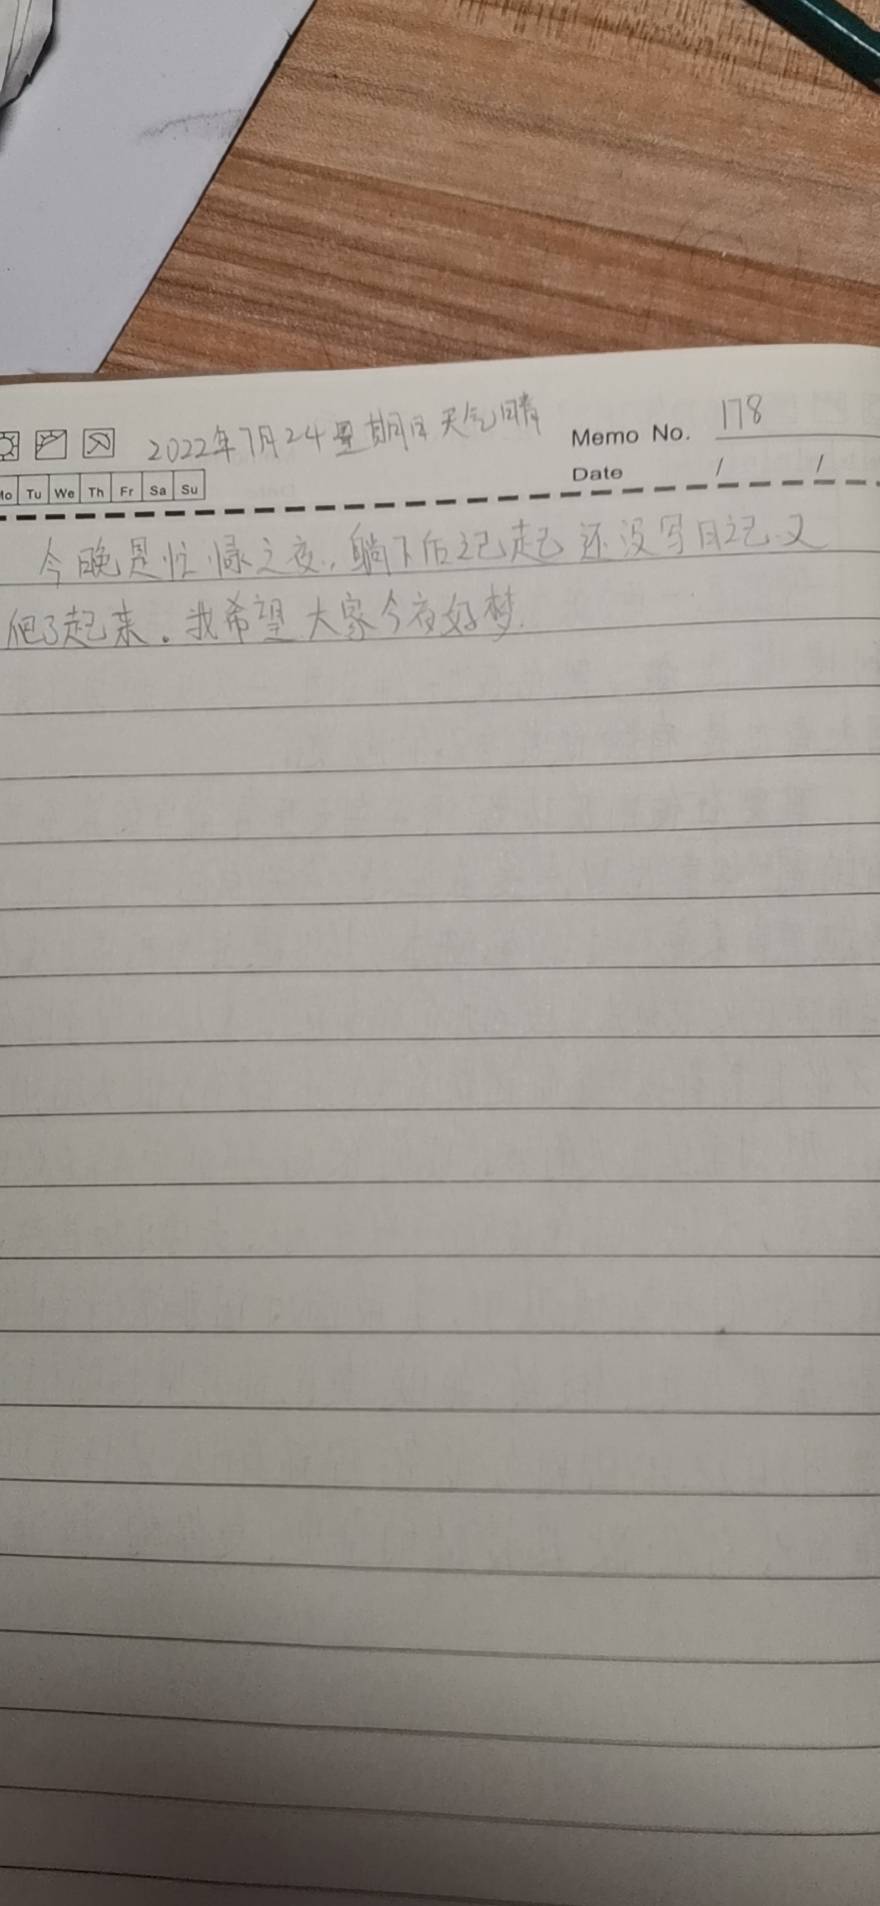 2022年7月24星期日天气晴
Memo No. 178
Date / /
Tu We Th Fr Sa Su
今晚是忙碌之夜,躺下后记起还没写日记.又
爬了起来。我希望大家今夜好梦.